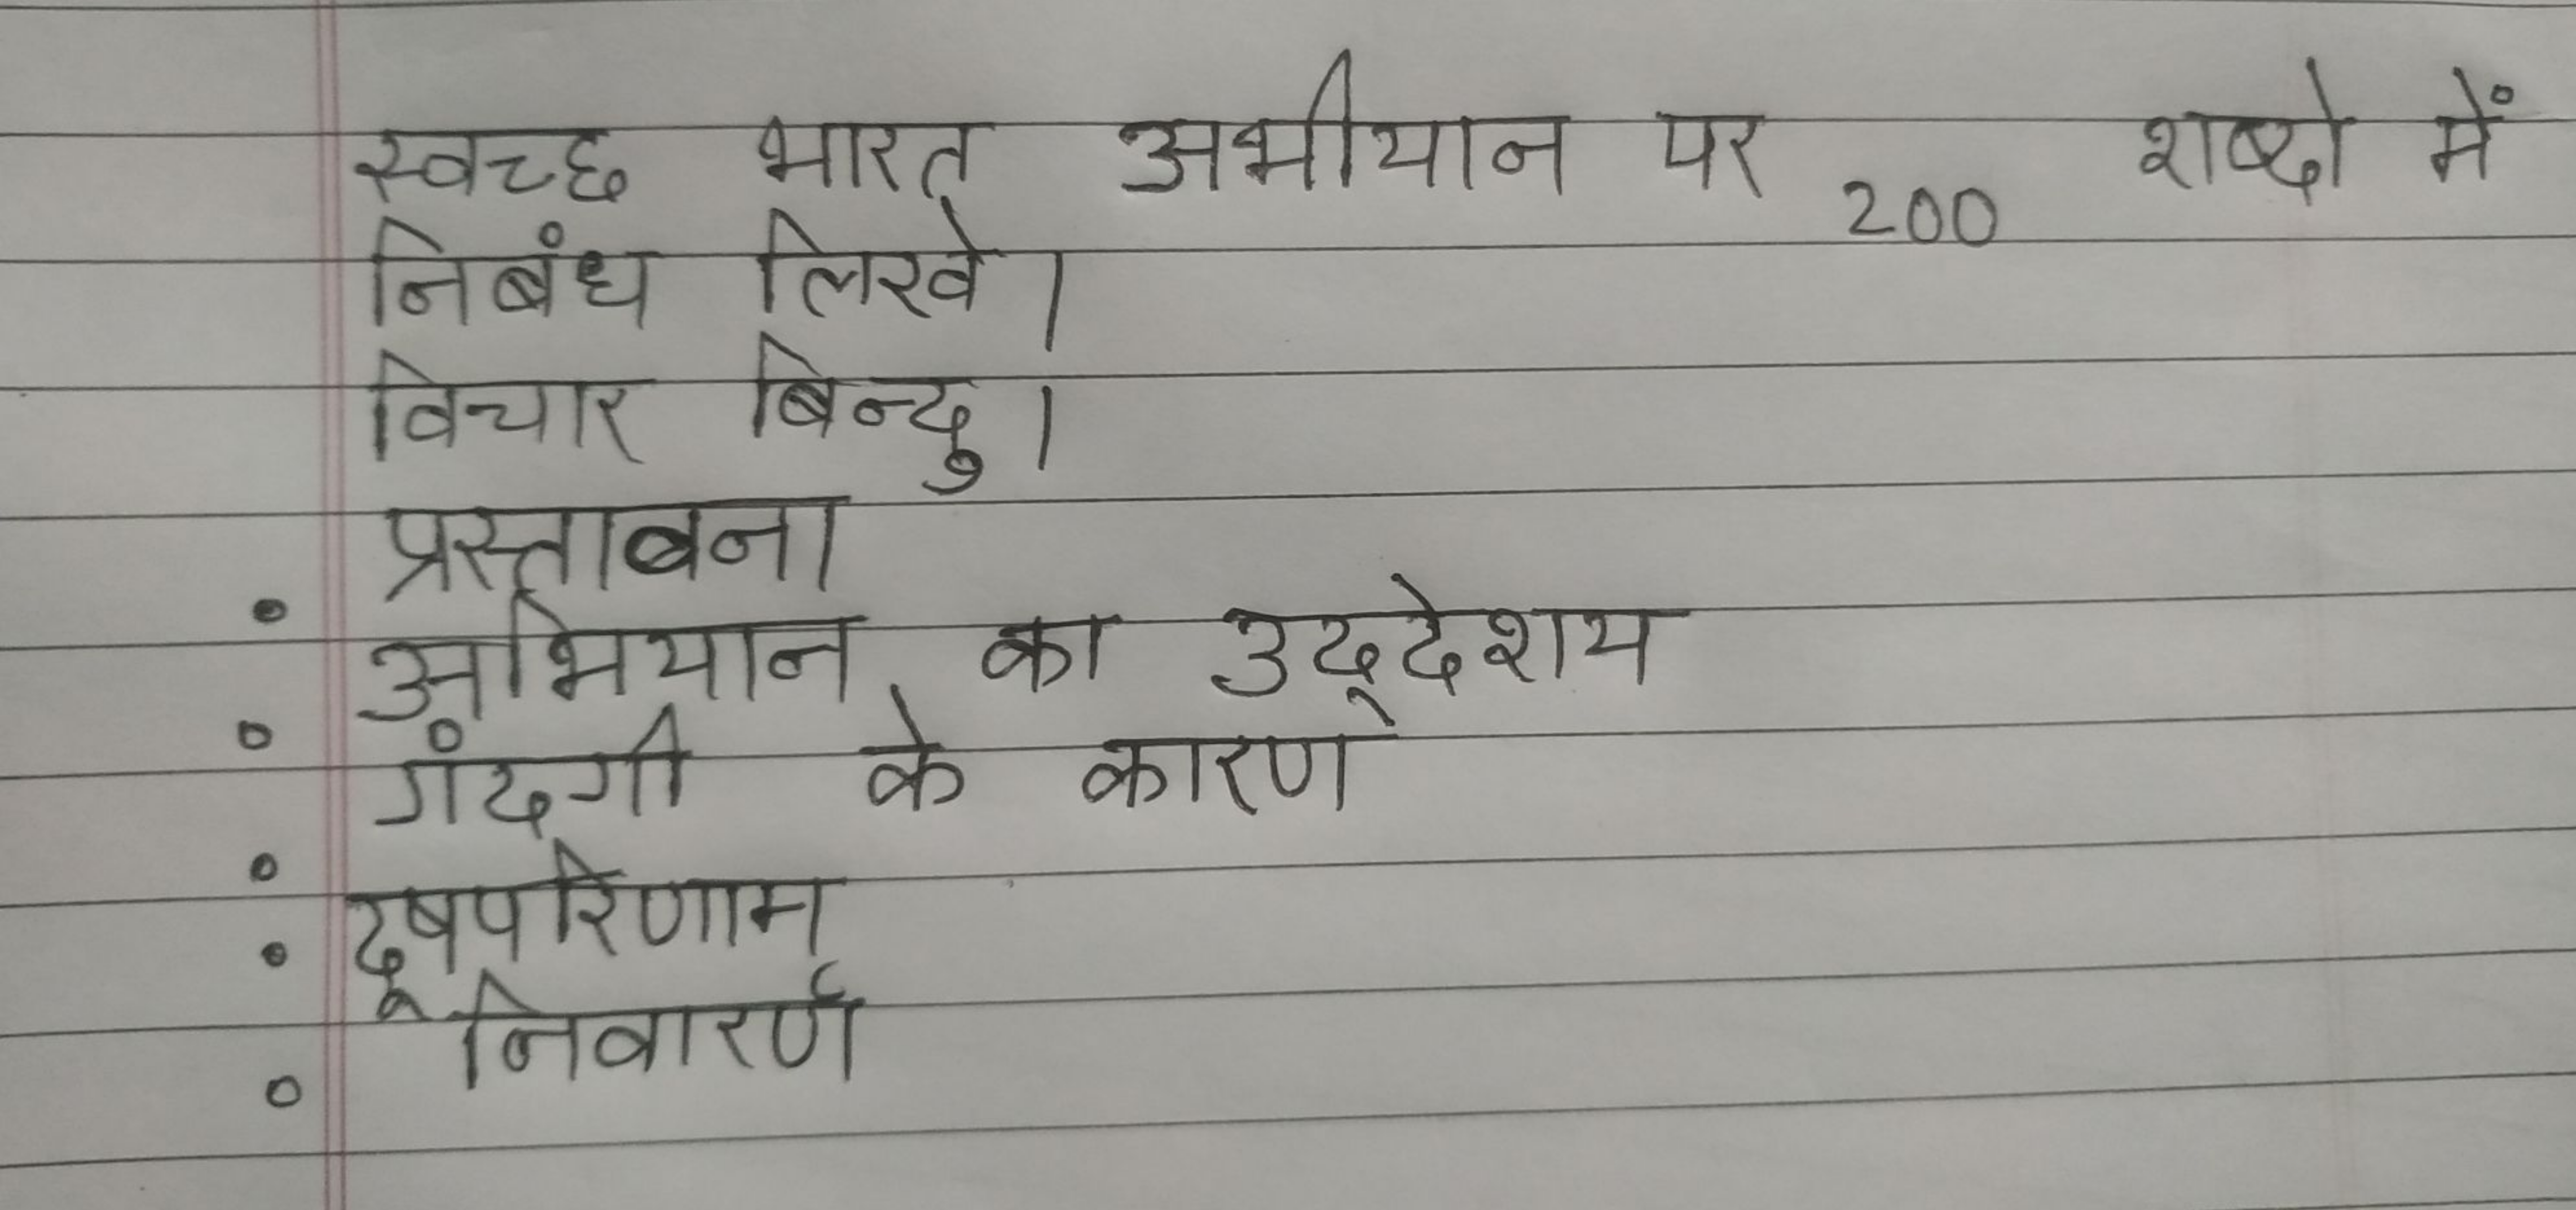 स्वच्छ भारत अभीयान पर 200 शब्दो में
निबंध लिखे।
विचार बिन्दु।
प्रस्ताबना
• अभियान का उद्देशय
• गंदगी के कारण
• दूषपरिणाम
• निवारर्ण